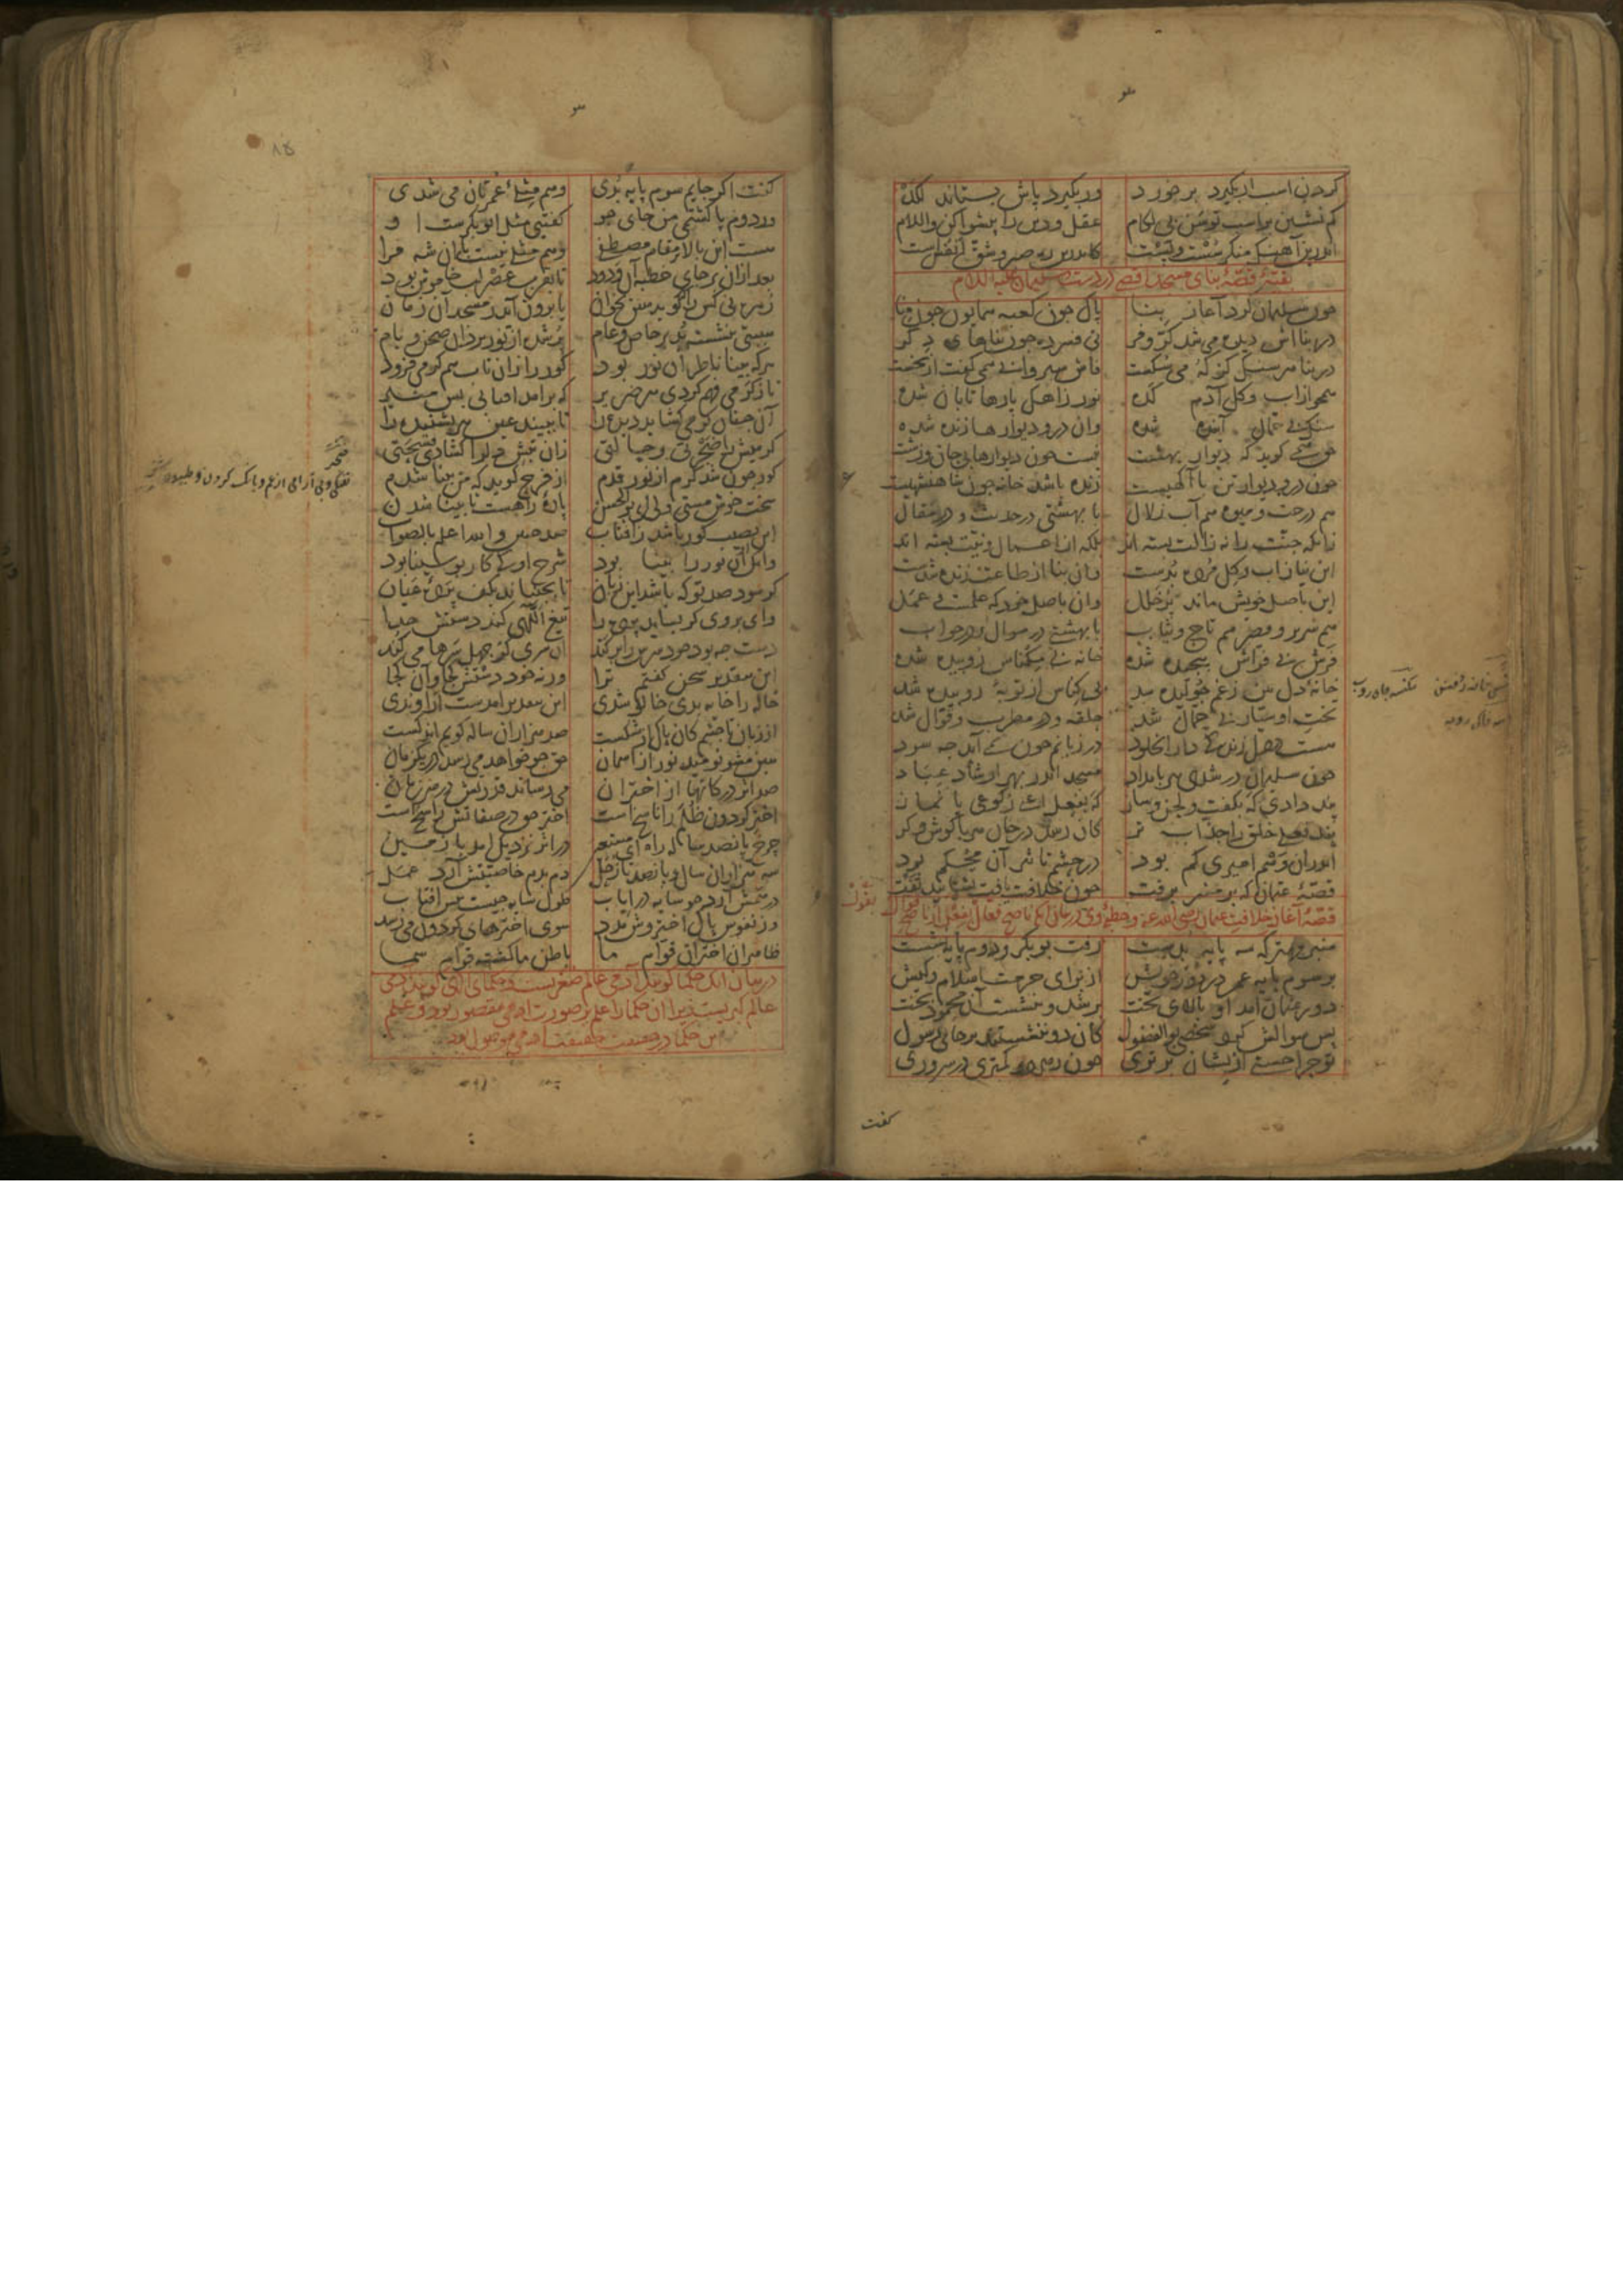 گردن اسب ار بگیرد برخورد ور بگیرد پاش بستاند لگد
کم نشین بر اسب توسن بی لکام عقل و دین را پیشوا کن والسلام
اندرین آهنگ منگر سست و پست کاندرین ره صبر و شق انفس است
بقیهٔ قصهٔ بنای مسجد اقصی در دست سلیمان علیه السلام
چون سلیمان کرد آغاز بنا پاک چون کعبه همایون چون منا
در بنااش دیده می شد کر و فر نی فسرده چون بناهای دکر
در بنا هر سنک کز که می سکست فاش سیروا بی همی کفت از نخست
همچو از آب و کل آدم کده نور ز آهک پارها تابان شده
سنک بی حمال آینده شده وان در و دیوارها زنده شده
حق همی کوید که دیوار بهشت نیست چون دیوارها بی جان و زشت
چون در و دیوار تن با آکهیست زنده باشد خانه چون شاهنشهیست
هم درخت و میوه هم آب زلال با بهشتی در حدیث و در مقال
زانکه جنت را نه زالت بسته اند بلکه از اعمال و نیت بسته اند
این بنا ز آب و کل مرده بدست وان بنا از طاعت زنده شدست
این باصل خویش ماند پر خلل وان باصل خود که علمست و عمل
هم سریر و قصر هم تاج و ثیاب با بهشتی در سوال و در جواب
فرش بی فراش پیچیده شده خانه بی مکناس روبیده شده
خانهٔ دل بین ز غم ژولیده شد بی کناس از توبهٔ روبیده شد
تخت او سیار بی حمال شد حلقه و در مطرب و قوال شد
هست در دل زندکی دار الخلود در زبانم چون نمی آید چه سود
چون سلیمان در شدی هر بامداد مسجد اندر بهر ارشاد عباد
پند دادی که بکفت و لحن و ساز که بفعل اعنی رکوعی یا نماز
پند فعلی خلق را جذاب تر کان رسد در جان هر با کوش و کر
اندران وهم امیری کم بود در حشم تاثیر آن محکم بود
قصهٔ عثمان که بر منبر برفت چون خلافت یافت بشتابید تفت
قصهٔ آغاز خلافت عثمان رضی الله عنه و خطبهٔ وی در بیان انکه ناصح فعال بفعل به از ناصح قوال بقول
منبر مهتر که سه پایه بدست رفت بوبکر و دوم پایه نشست
بر سوم پایه عمر در دور خویش از برای حرمت اسلام و کیش
دور عثمان آمد او بالای تخت بر شد و بنشست آن محمود بخت
پس سوالش کرد شخصی بوالفضول کان دو ننشستند بر جای رسول
تو چرا جستی ازیشان برتری چون برتبت تو ازیشان کمتری
کفت
کفت اکر جایم سوم پایه بدی وهم مثلی عمرتان می شدی
ور دوم پا کشتمی من جای جو کفتیی مثل ابوبکرست او
هست این بالا مقام مصطفی وهم مثلی نیست با آن شه مرا
بعد ازان بر جای خطبه آن ودود تا بقرب عصر لب خاموش بود
زهره نی کس را که کوید هین بخوان یا برون آید ز مسجد آن زمان
هیبتی بنشسته بد بر خاص و عام پر شده از نور یزدان صحن و بام
هرکه بینا ناظر آن نور بود کور را زان تاب هم کرمی فزود
تا ز کرمی فهم کردی هر ضریر که برآمد آفتابی بس منیر
آن چنان کرمی کشاید دیده را تا ببیند عین هر بشنیده را
کرمیش را ضجرتی و حالتی زان تپش دل را کشادی فسحتی
کور چون شد کرم از نور قدم از فرح کوید که من بینا شدم
سخت خوش مستی ولی ای بوالحسن پارهٔ راهست تا بینا شدن
این نصیب کور باشد ز آفتاب صد چنین والله اعلم بالصواب
وانک آن نور را بینا بود شرح او کی کار بو سینا بود
کر شود صد تو که باشد این زبان تا بجنباند بکف پردهٔ عیان
وای بر وی کر بساید پرده را تیغ اللهی کند دستش جدا
دست چه بود خود سرش را بر کند آن سری کز جهل سرها می کند
این بتقدیر سخن کفتم ترا ورنه خود دستش کجا و آن کجا
خاله را خایه بدی خالو شدی این بتقدیر آمدست ار او بدی
از زبان تا چشم کان پاک از شکست صد هزاران ساله کویم اندکست
هین مشو نومید نور از آسمان حق چو خواهد می رسد در یک زمان
صد اثر در کانها از اختران می رساند قدرتش در هر زمان
اختر کردون ظلم را ناسخ است اختر حق در صفاتش راسخ است
چرخ پانصد ساله راه ای مستعین در اثر نزدیک آمد با زمین
سه هزاران سال و پانصد تا زحل دم بدم خاصیتش آرد عمل
در همش آرد چو سایه در ایاب طول سایه چیست پیش آفتاب
وز نفوس پاک اختروش مدد سوی اخترهای کردون می رسد
ظاهر آن اختران قوام ما باطن ما کشته قوام سما
در بیان آنک حکما کویند آدمی عالم صغریست و حکمای الهی کویند آدمی
عالم کبریست زیرا آن حکما را علم بر صورت آدمی مقصور بود و علم
این حکما در حقیقت حقیقت آدمی موصول بود